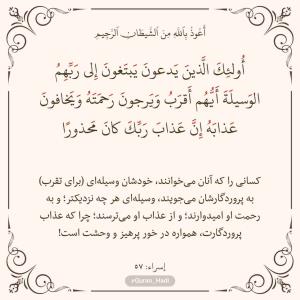 أَعُوذُ بِاللَّهِ مِنَ الشَّيطَانِ الرَّجِيمِ
أُولئِكَ الَّذينَ يَدعونَ يَبتَغونَ إِلى رَبِّهِمُ
الوَسيلَةَ أَيُّهُم أَقرَبُ وَيَرجونَ رَحمَتَهُ وَيَخافونَ
عَذابَهُ إِنَّ عَذابَ رَبِّكَ كانَ مَحذورًا
کسانی را که آنان می‌خوانند، خودشان وسیله‌ای (برای تقرب)
به پروردگارشان می‌جویند، وسیله‌ای هر چه نزدیکتر؛ و به
رحمت او امیدوارند؛ و از عذاب او می‌ترسند؛ چرا که عذاب
پروردگارت، همواره در خور پرهیز و وحشت است!
إسراء: ۵۷
@Quran_Hadi